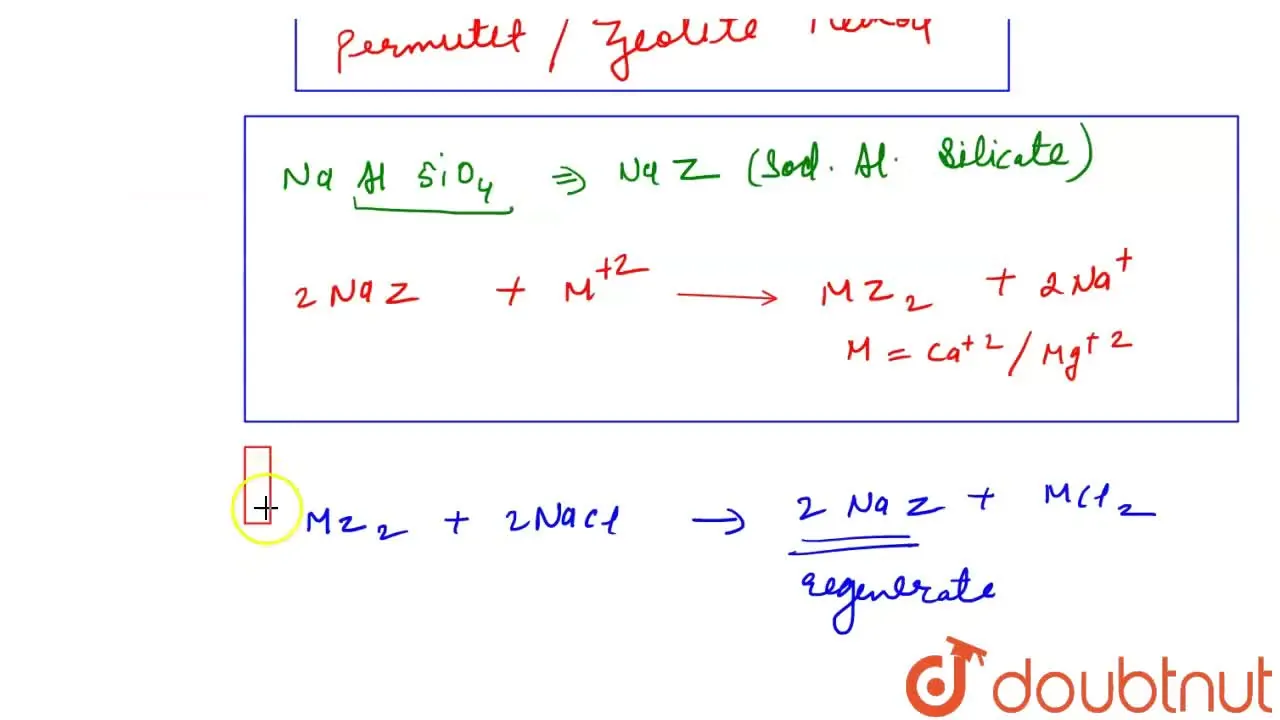 Permutit / Zeolite
NaAlSiO₄ ⇒ NaZ (Sod. Al. Silicate)
2NaZ + M⁺² → MZ₂ + 2Na⁺
M = Ca⁺² / Mg⁺²
MZ₂ + 2NaCl → 2NaZ + MCl₂
regenerate
doubtnut